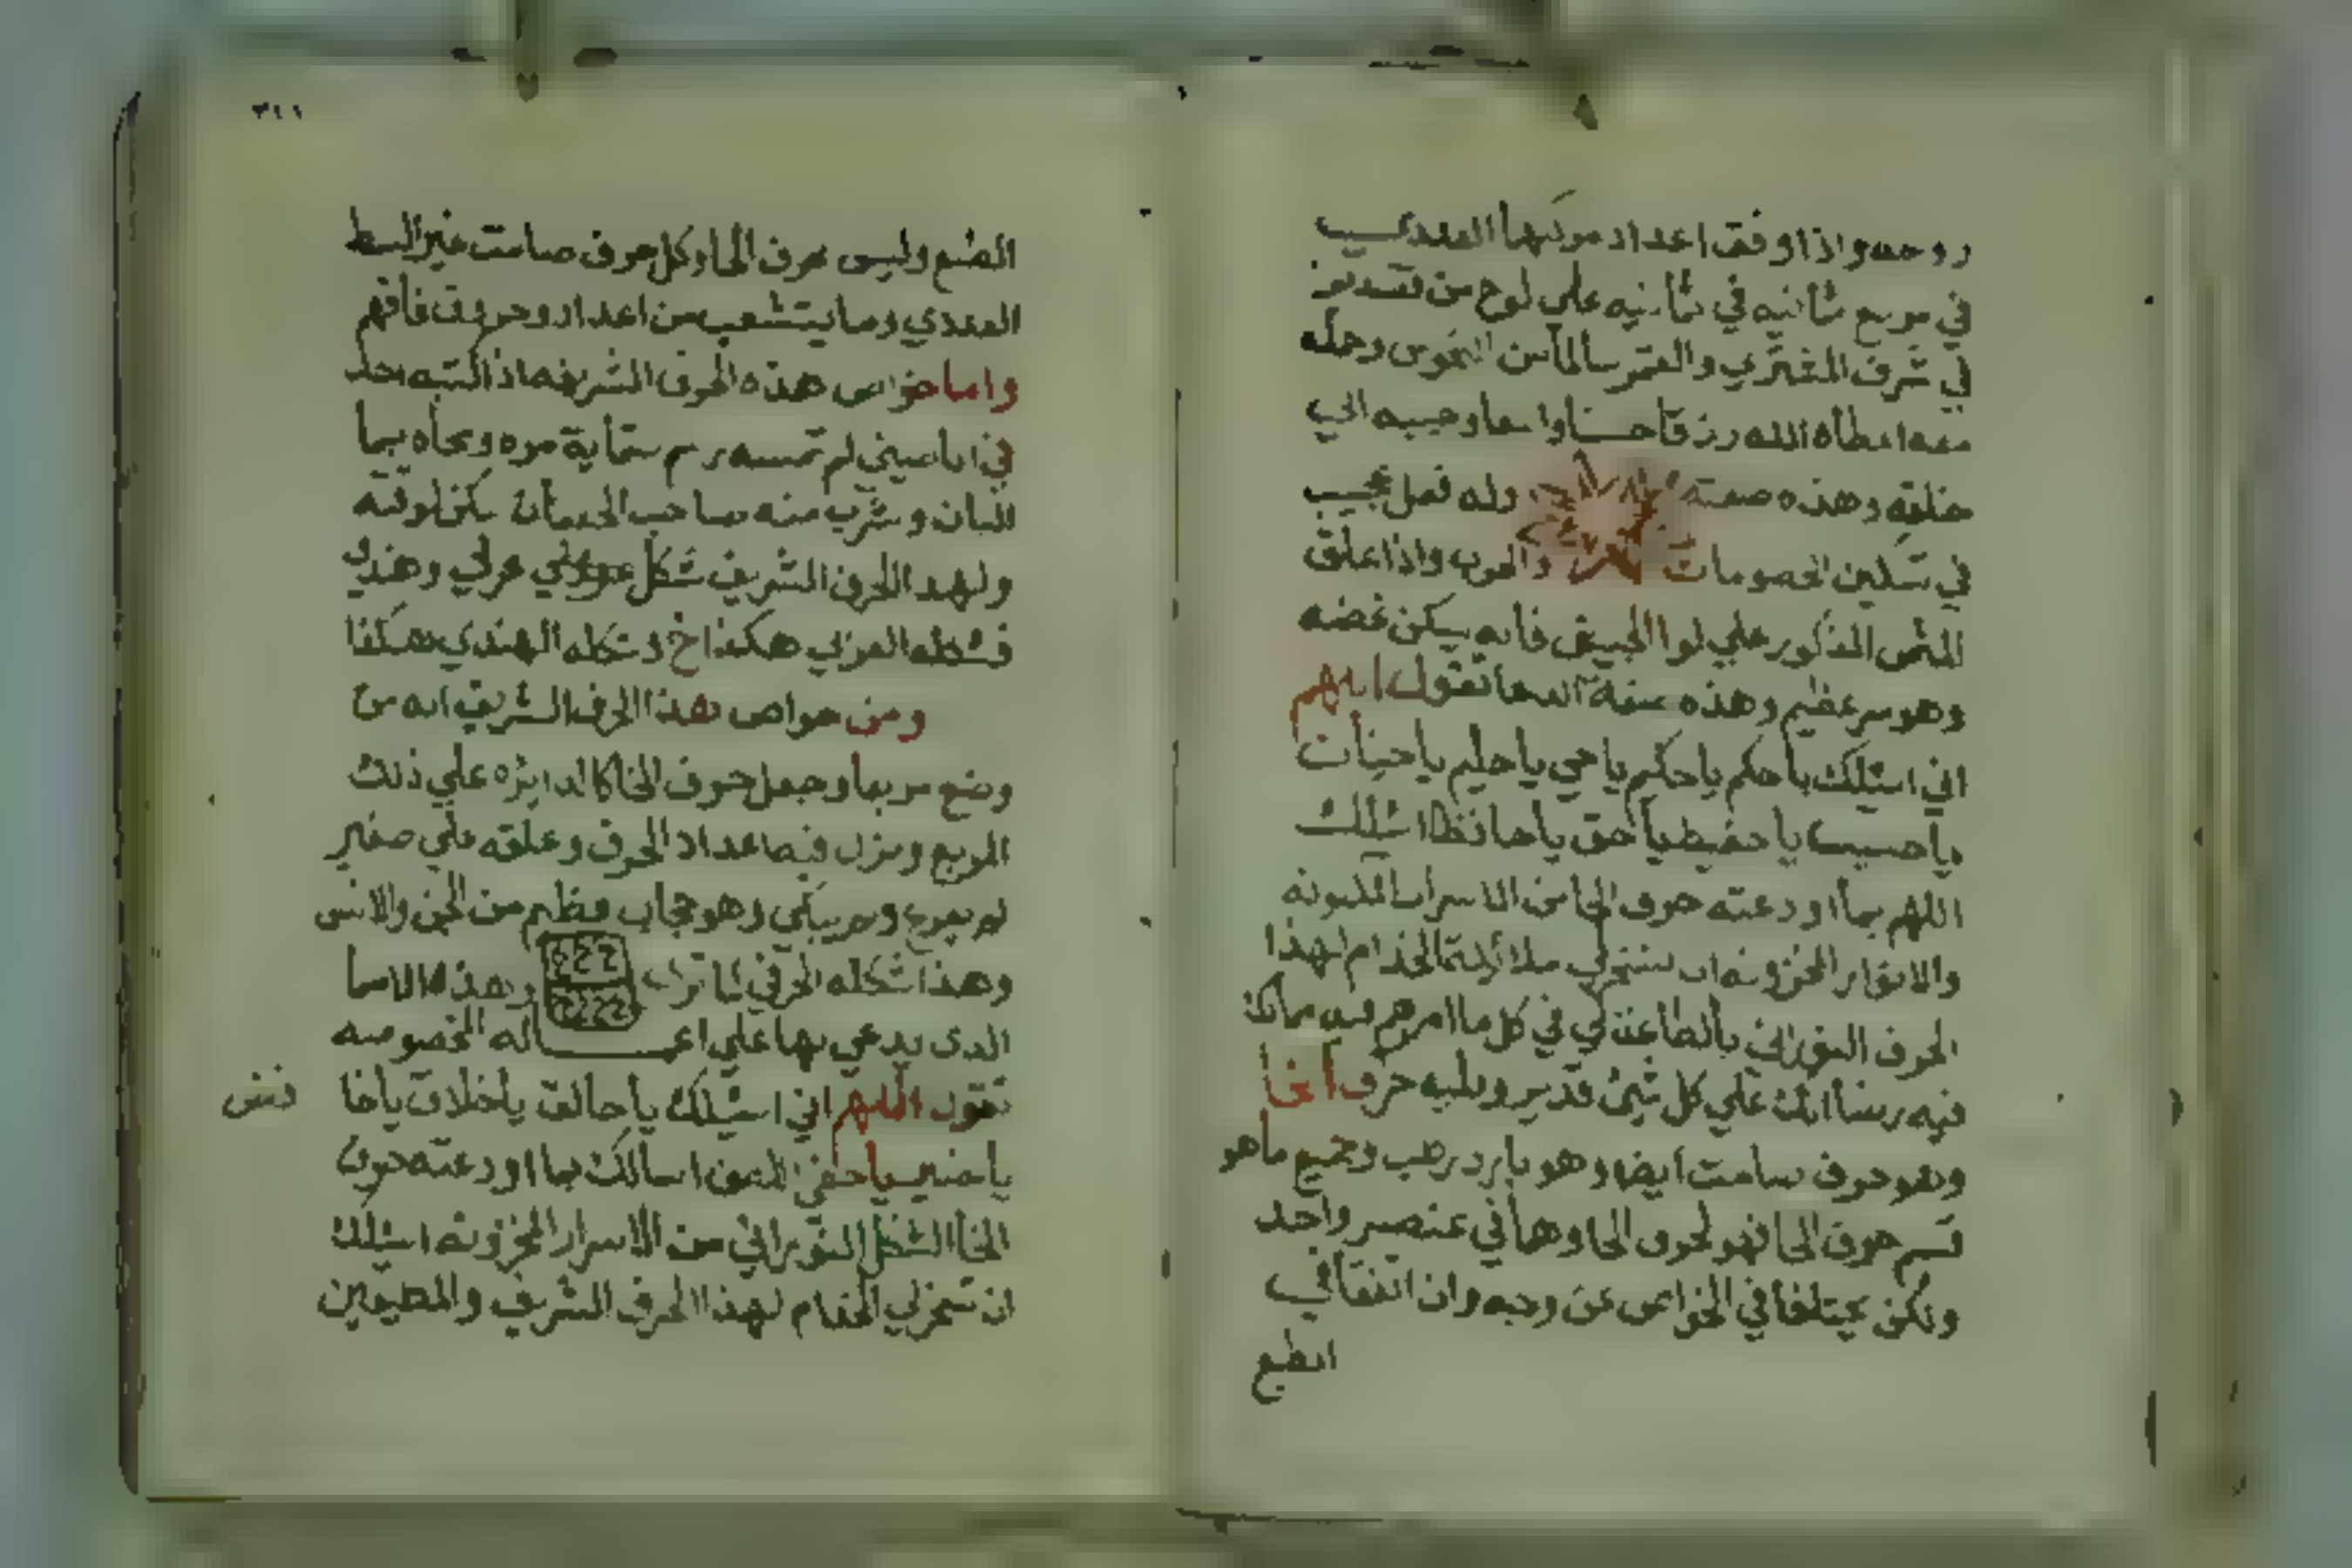 روحه واذا وفق اعداد مركبها العددي
في مربع ثمانيه في ثمانيه على لوح من قصدير
في شرف المشتري والقمر سالما من النحوس وحمله
معه اعطاه الله رزقا حسنا واسعا وحببه الي
خلقه وهذه صفته وله فعل عجيب
في تسكين الخصومات والحرب واذا علق
المثمن المذكور علي لوا الجيش فانه يسكن غضبه
وهو سر عظيم وهذه صفة الدعا تقول اللهم
اني اسئلك يا حكم يا حكيم يا حي يا حليم يا حنان
يا حسيب يا حفيظ يا حق يا حافظ اسئلك
اللهم بما اودعته حرف الحا من الاسرار المكنونه
والانوار المخزونه ان تسخر لي ملائكة الخدام لهذا
الحرف النوراني بالطاعة لي في كل ما امرهم
فيه ربنا انك علي كل شئ قدير ويليه حرف الخا
وهو حرف صامت ايضا وهو بارد رطب وجميع ما هو
قسم حرف الحا فهو لحرف الخا وهما في عنصر واحد
ولكن يختلفا في الخواص من وجه وان اتفقا في
الطبع
٣١١
الطبع وليس حرف الخا وكل حرف صامت غير البسط
العددي وما يتشعب من اعداد وحروف فافهم
واما خواص هذه الحرف الشريفه اذا كتبه احد
في انا صيني لم تمسه رسم ستماية مره ومحاه بما
اللبان وشرب منه صاحب الخفقان سكن لوقته
ولهذا الحرف الشريف شكل عربي وهندي
فشكله العربي هكذا خ وشكله الهندي هكذا
ومن خواص هذا الحرف الشريف انه من
وضع مربعا وجعل حرف الخا كالدايره علي ذلك
المربع ونزل فيه اعداد الحرف وعلقه علي صغير
لم يفزع ولم يبكي وهو حجاب عظيم من الجن والانس
وهذا شكله الحرفي كما ترا وهذه الاسما
الذي يدعي بها علي له الخصوصه
تقول اللهم اني اسئلك يا خالق يا خلاق يا خا فض
يا خبير يا خفي اسالك بما اودعته حرف
الخا الشكل النوراني من الاسرار المخزونه اسئلك
ان تسخر لي الخدام لهذا الحرف الشريف والمطيعين